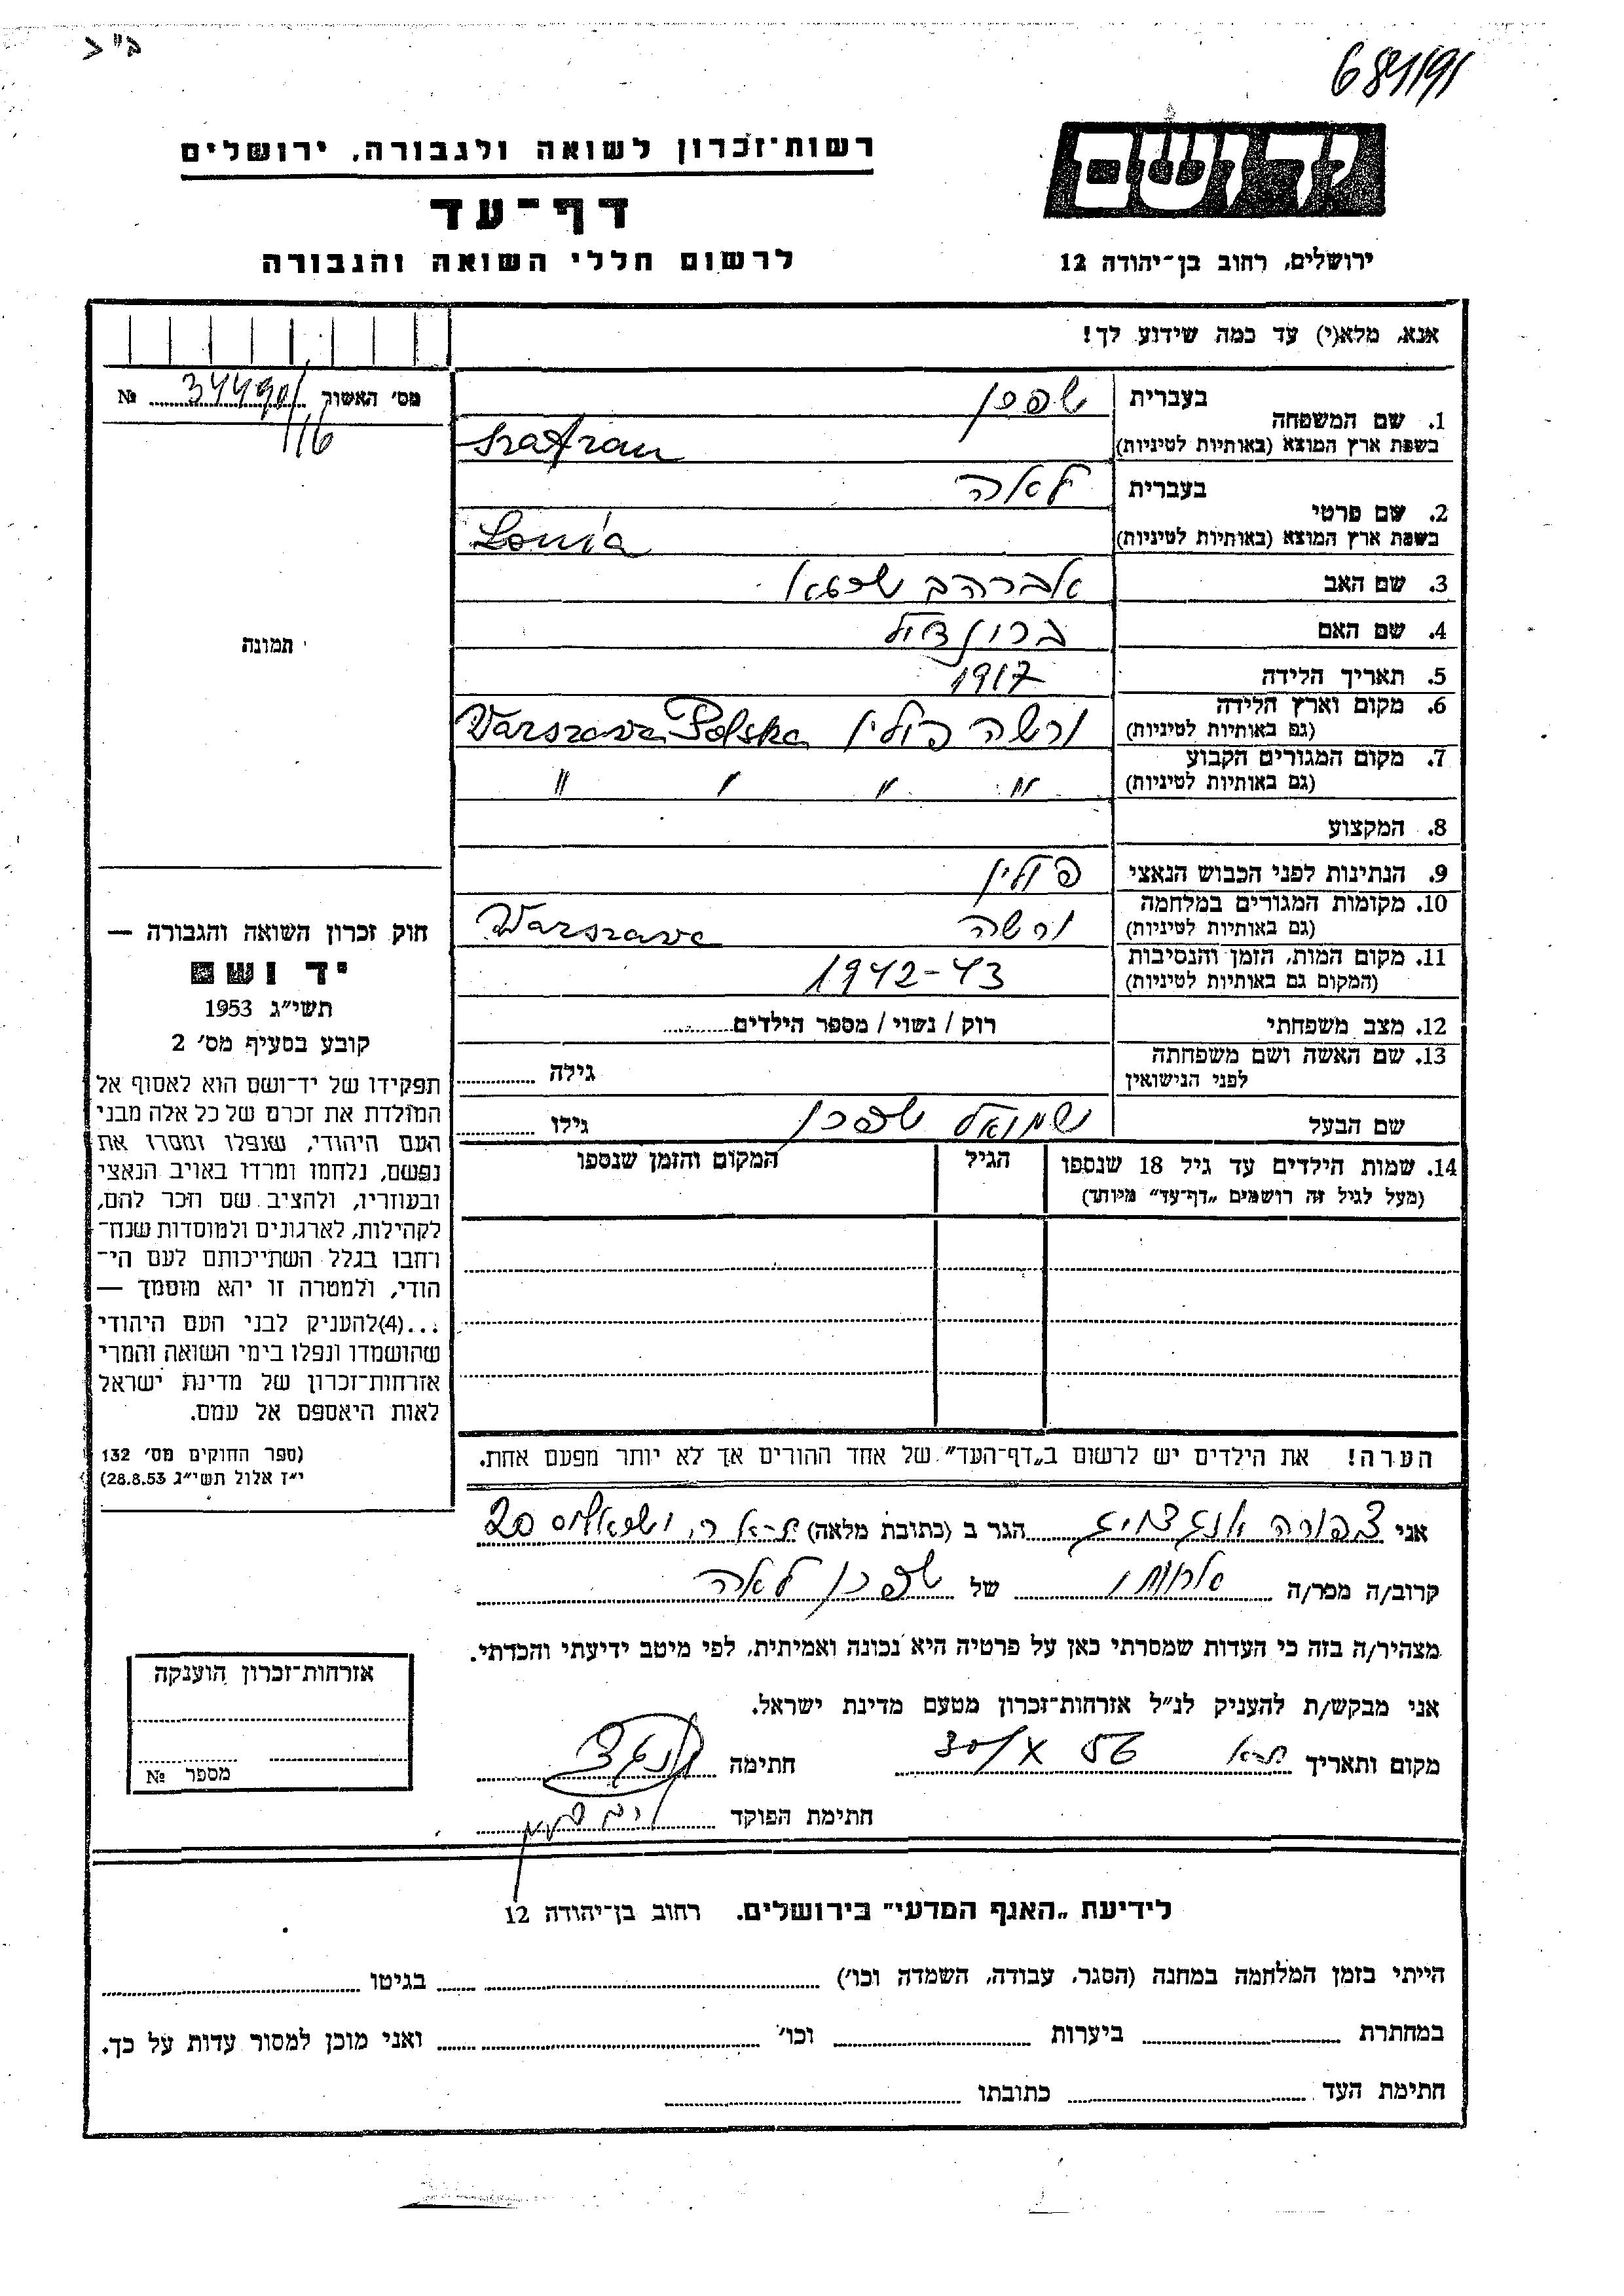 ב"ד
681/91
יד ושם
רשות-זכרון לשואה ולגבורה, ירושלים
דף-עד
ירושלים, רחוב בן-יהודה 12
לרשום חללי השואה והגבורה
אנא, מלא(י) עד כמה שידוע לך!
מס' האשור № 34490/
116
תמונה
1. שם המשפחה
בעברית שפרן
בשפת ארץ המוצא (באותיות לטיניות) Szafran
2. שם פרטי
בעברית לאה
בשפת ארץ המוצא (באותיות לטיניות) Lonia
3. שם האב אברהם
4. שם האם
5. תאריך הלידה 1917
6. מקום וארץ הלידה
(גם באותיות לטיניות) ורשה פולין Warszawa Polska
7. מקום המגורים הקבוע
(גם באותיות לטיניות) " " " "
8. המקצוע
9. הנתינות לפני הכבוש הנאצי פולין
10. מקומות המגורים במלחמה
(גם באותיות לטיניות) ורשה Warszawa
11. מקום המות, הזמן והנסיבות
(המקום גם באותיות לטיניות) 1942-43
12. מצב משפחתי רוק / נשוי / מספר הילדים
13. שם האשה ושם משפחתה
לפני הנישואין גילה
שם הבעל שמואל שפרן גילו
14. שמות הילדים עד גיל 18 שנספו הגיל המקום והזמן שנספו
(מעל לגיל זה רושמים „דף-עד" מיוחד)
הערה! את הילדים יש לרשום ב„דף-העד" של אחד ההורים אך לא יותר מפעם אחת.
חוק זכרון השואה והגבורה —
יד ושם
תשי"ג 1953
קובע בסעיף מס' 2
תפקידו של יד-ושם הוא לאסוף אל
המולדת את זכרם של כל אלה מבני
העם היהודי, שנפלו ומסרו את
נפשם, נלחמו ומרדו באויב הנאצי
ובעוזריו, ולהציב שם וזכר להם,
לקהילות, לארגונים ולמוסדות שנח-
רחבו בגלל השתייכותם לעם הי-
הודי, ולמטרה זו יהא מוסמך —
...(4)להעניק לבני העם היהודי
שהושמדו ונפלו בימי השואה והמרי
אזרחות-זכרון של מדינת ישראל
לאות היאספם אל עמם.
(ספר החוקים מס' 132
י"ז אלול תשי"ג 28.8.53)
אני צפורה הגר ב (כתובת מלאה) ת"א 20
קרוב/ה מכר/ה של שפרן לאה
מצהיר/ה בזה כי העדות שמסרתי כאן על פרטיה היא נכונה ואמיתית, לפי מיטב ידיעתי והכרתי.
אני מבקש/ת להעניק לנ"ל אזרחות-זכרון מטעם מדינת ישראל.
מקום ותאריך ת"א 30/X 56 חתימה
חתימת הפוקד
אזרחות-זכרון הוענקה
מספר №
לידיעת „האגף המדעי" בירושלים. רחוב בן-יהודה 12
הייתי בזמן המלחמה במחנה (הסגר, עבודה, השמדה וכו') בגיטו
במחתרת ביערות וכו' ואני מוכן למסור עדות על כך.
חתימת העד כתובתו